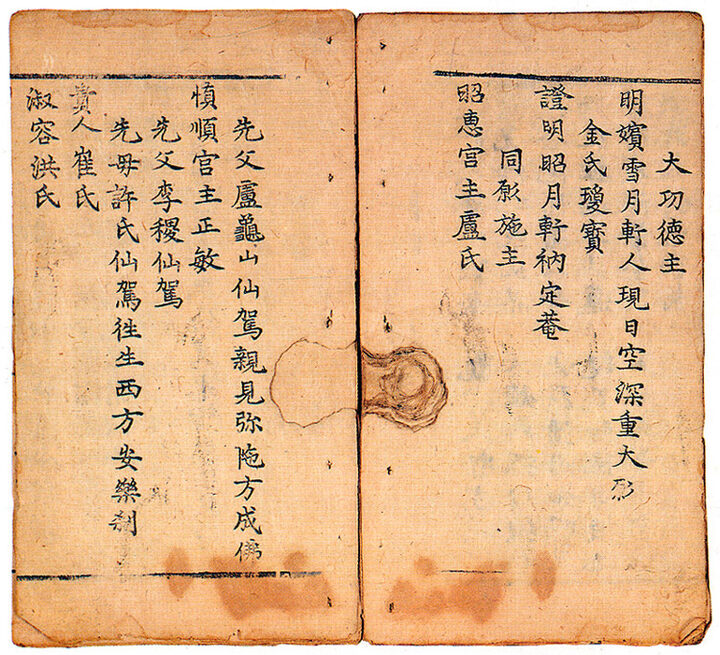 大功德主
明嬪雪月軒人現日空深重大
金氏瓊寶
證明昭月軒衲定菴
同愿施主
昭惠宫主盧氏
先父盧龜山仙駕親見弥陁方成佛
慎順官主正敏
先父李稷仙駕
先母許氏仙駕徃生西方安樂刹
貴人崔氏
淑容洪氏